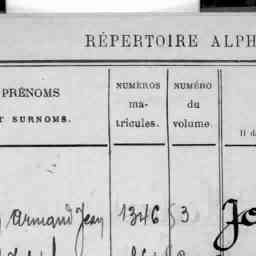 RÉPERTOIRE ALPH
PRÉNOMS
T SURNOMS.
NUMÉROS
ma-
tricules.
NUMÉRO
du
volume.
Il d
Armand Jean 1346 3